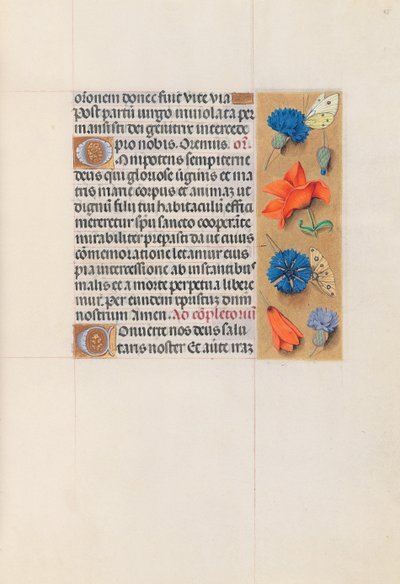 oronem donec fuit vite via
Post partu virgo inviolata per
mansisti dei genitrix intercede
pro nobis. Oremus. or.
Omnipotens sempiterne
deus qui gloriose virginis et ma
tris marie corpus et animaz ut
dignu filii tui habitaculu effici
mereretur spu sancto cooperate
mirabiliter preparasti da ut cuius
comemoratione letamur eius
pia intercessione ab instantibus
malis et a morte perpetua libere
mur. per eundem xpistum dnm
nostrum Amen. Ad completoriu
Converte nos deus salu
taris noster Et averte iraz